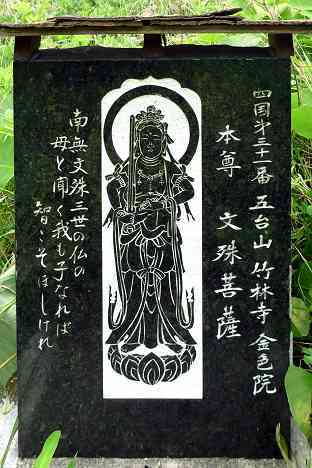 四国第三十一番 五台山 竹林寺 金色院
本尊 文殊菩薩
南無文殊三世の仏の
母と聞く我も子なれば
智こそほしけれ